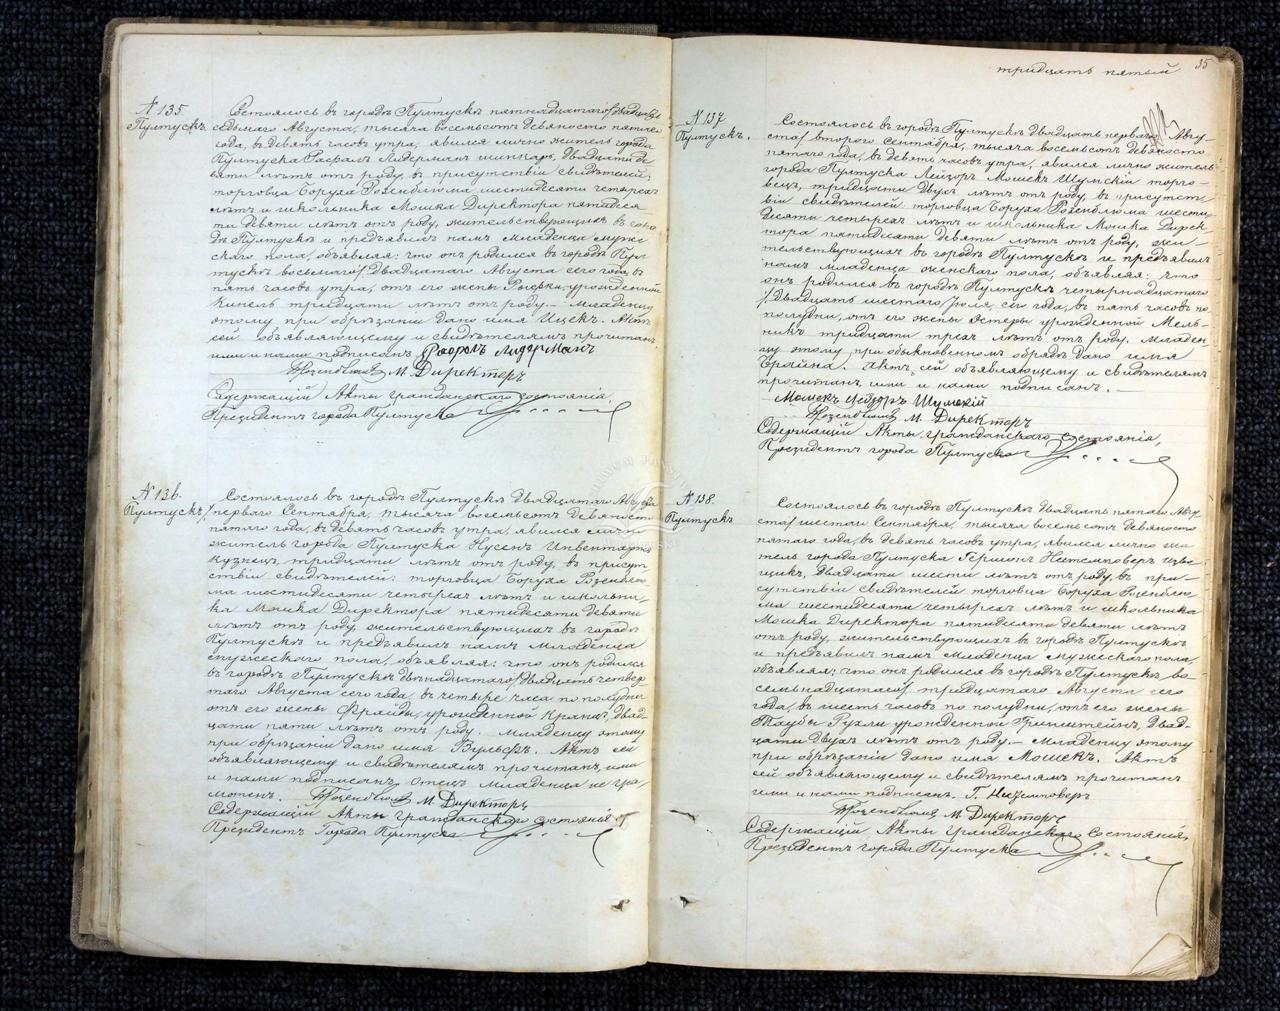 № 135.
Пултускъ.
Состоялось въ городѣ Пултускѣ пятнадцатаго/двадцать
седьмаго Августа, тысяча восемьсотъ девяносто пятаго
года, въ девять часовъ утра, явился лично житель города
Пултуска Рафалъ Лидерманъ шинкарь, двадцати де-
вяти лѣтъ отъ роду, въ присутствіи свидѣтелей,
торговца Боруха Розенблюма шестидесяти четырехъ
лѣтъ и школьника Мошка Директора пятидеся-
ти девяти лѣтъ отъ роду, жительствующихъ въ горо-
дѣ Пултускѣ и предъявилъ намъ младенца мужес-
скаго пола, объявляя: что онъ родился въ городѣ Пул-
тускѣ восьмаго/двадцатаго Августа сего года, въ
пять часовъ утра, отъ его жены урожденной
тридцати лѣтъ отъ роду. — Младенцу
этому при обрѣзаніи дано имя Ицекъ. Актъ
сей объявляющему и свидѣтелямъ прочитанъ,
ими и нами подписанъ. Рафалъ Лидерманъ
Розенблюмъ М. Директоръ
Содержащій Акты гражданскаго состоянія,
Президентъ города Пултуска
№ 136.
Пултускъ.
Состоялось въ городѣ Пултускѣ двадцатаго Августа/
перваго Сентября, тысяча восемьсотъ девяносто
пятаго года, въ девять часовъ утра, явился лично
житель города Пултуска Нусенъ Инвентаржъ
кузнецъ, тридцати лѣтъ отъ роду, въ присут-
ствіи свидѣтелей: торговца Боруха Розенблю-
ма шестидесяти четырехъ лѣтъ и школьни-
ка Мошка Директора пятидесяти девяти
лѣтъ отъ роду, жительствующихъ въ городѣ
Пултускѣ и предъявилъ намъ младенца
мужескаго пола, объявляя: что онъ родился
въ городѣ Пултускѣ двѣнадцатаго/двадцать четвер-
таго Августа сего года, въ четыре часа по полудни
отъ его жены Фрайды, урожденной Кранцъ, двад-
цати пяти лѣтъ отъ роду. Младенцу этому
при обрѣзаніи дано имя Вульфъ. Актъ сей
объявляющему и свидѣтелямъ прочитанъ, ими
и нами подписанъ. Отецъ младенца не гра-
мотенъ. Розенблюмъ М. Директоръ
Содержащій Акты Гражданскаго состоянія
Президентъ Города Пултуска
тридцать пятый 35
№ 137.
Пултускъ.
Состоялось въ городѣ Пултускѣ двадцать перваго Авгу-
ста/второго Сентября, тысяча восемьсотъ девяносто
пятаго года, въ девять часовъ утра, явился лично житель
города Пултуска Лейзоръ Мошекъ Шумскій торго-
вецъ, тридцати двухъ лѣтъ отъ роду, въ присутст-
віи свидѣтелей торговца Боруха Розенблюма шести-
десяти четырехъ лѣтъ и школьника Мошка Дирек-
тора пятидесяти девяти лѣтъ отъ роду, жи-
тельствующихъ въ городѣ Пултускѣ и предъявилъ
намъ младенца женскаго пола, объявляя: что
онъ родился въ городѣ Пултускѣ четырнадцатаго
/двадцать шестаго Іюля, сего года, въ пять часовъ по
полудни, отъ его жены Эстеры урожденной Мель-
никъ тридцати трехъ лѣтъ отъ роду. Младен-
цу этому, при обыкновенномъ обрядѣ дано имя
Актъ сей объявляющему и свидѣтелямъ
прочитанъ, ими и нами подписанъ. —
Мошекъ Лейзоръ Шумскій
Розенблюмъ М. Директоръ
Содержащій Акты гражданскаго состоянія,
Президентъ города Пултуска
№ 138.
Пултускъ
Состоялось въ городѣ Пултускѣ двадцать пятаго Авгу-
ста/шестаго Сентября, тысяча восемьсотъ девяносто
пятаго года, въ девять часовъ утра, явился лично жи-
тель города Пултуска Гершонъ
двадцати шести лѣтъ отъ роду, въ при-
сутствіи свидѣтелей торговца Боруха Розенблю-
ма шестидесяти четырехъ лѣтъ и школьника
Мошка Директора пятидесяти девяти лѣтъ
отъ роду, жительствующихъ въ городѣ Пултускѣ
и предъявилъ намъ младенца мужескаго пола,
объявляя: что онъ родился въ городѣ Пултускѣ во-
семьнадцатаго/тридцатаго Августа сего
года, въ шесть часовъ по полудни, отъ его жены
Таубы Рухли урожденной Гринштейнъ, двад-
цати двухъ лѣтъ отъ роду. — Младенцу этому
при обрѣзаніи дано имя Мошекъ. Актъ
сей объявляющему и свидѣтелямъ прочитанъ
ими и нами подписанъ. Г.
Розенблюмъ М. Директоръ
Содержащій Акты Гражданскаго Состоянія,
Президентъ города Пултуска